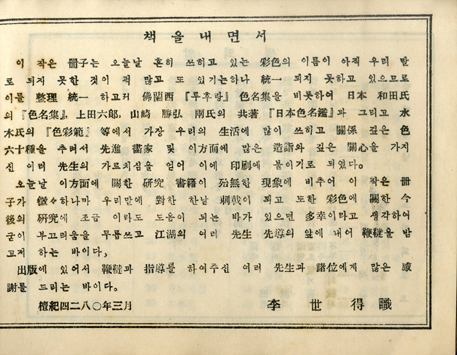 책을내면서
이 작은 冊子는 오늘날 흔히 쓰히고 있는 彩色의 이름이 아직 우리 말
로 되지 못한것이 적 많고 도 있기는하나 統一 되지 못하고 있으므로
이를 整理 統一 하고저 佛蘭西 『루후랑』 色名集을 비롯하여 日本 和田氏
의 『色名集』, 上田六郞, 山崎 勝弘 兩氏의 共著 『日本色名鑑』과 그리고 水
木氏의 『色彩範』 等에서 가장 우리의 生活에 많이 쓰히고 關係 깊은 色
六十種을 추려서 先進 畵家 및 이方面에 많은 造詣와 깊은 關心을 가지
신 여러 先生의 가르치심을 얻어 이에 印刷에 붙이기로 되였다.
오늘날 이方面에 關한 硏究 書籍이 殆無한 現象에 비추어 이 작은 冊
子가 微々하나마 우리말에 對한 한낱 되고 또한 彩色에 關한 今
後의 硏究에 조금 이라도 도움이 되는 바가 있으면 多幸이라고 생각하여
굳이 부끄러움을 무릅쓰고 江湖의 여러 先生 先導의 앞에 내어 鞭韃을받
고저 하는 바이다,
出版에 있어서 鞭韃과 指導를 하여주신 여러 先生과 諸位에게 많은 感
謝를 드리는 바이다.
檀紀四二八〇年三月 李世得識